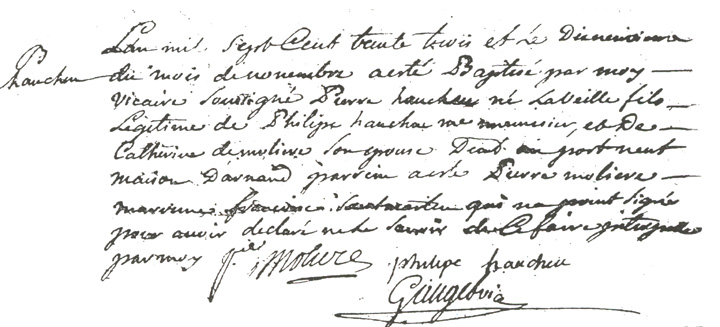 Lan mil Sept Cent trente trois et Le Dieneuvieme
hauchec du mois de novembre a esté Baptisé par moy
vicaire Soussigné Pierre hauchec né La veille fils
Légitime de Philipe hauchec me menuisier, et De
Catherine de moliere Son épouse Dem^t au port neuf
maison Darnaud parrein a esté Pierre moliere
marrenne francoise qui na point Signé
pour avoir déclaré ne le Savoir de Ce faire
par moy p^re Moliere philipe hauchec